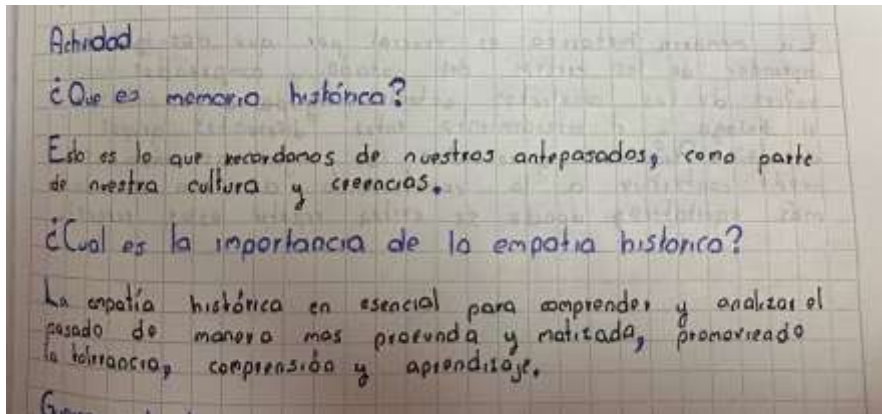 Actividad
¿Que es memoria histórica?
Esto es lo que recordamos de nuestros antepasados, como parte
de nuestra cultura y creencias.
¿Cual es la importancia de la empatia historica?
La empatía histórica en esencial para comprender y analizar el
pasado de manera mas profunda y matizada, promoviendo
la tolerancia, comprensión y aprendizaje.